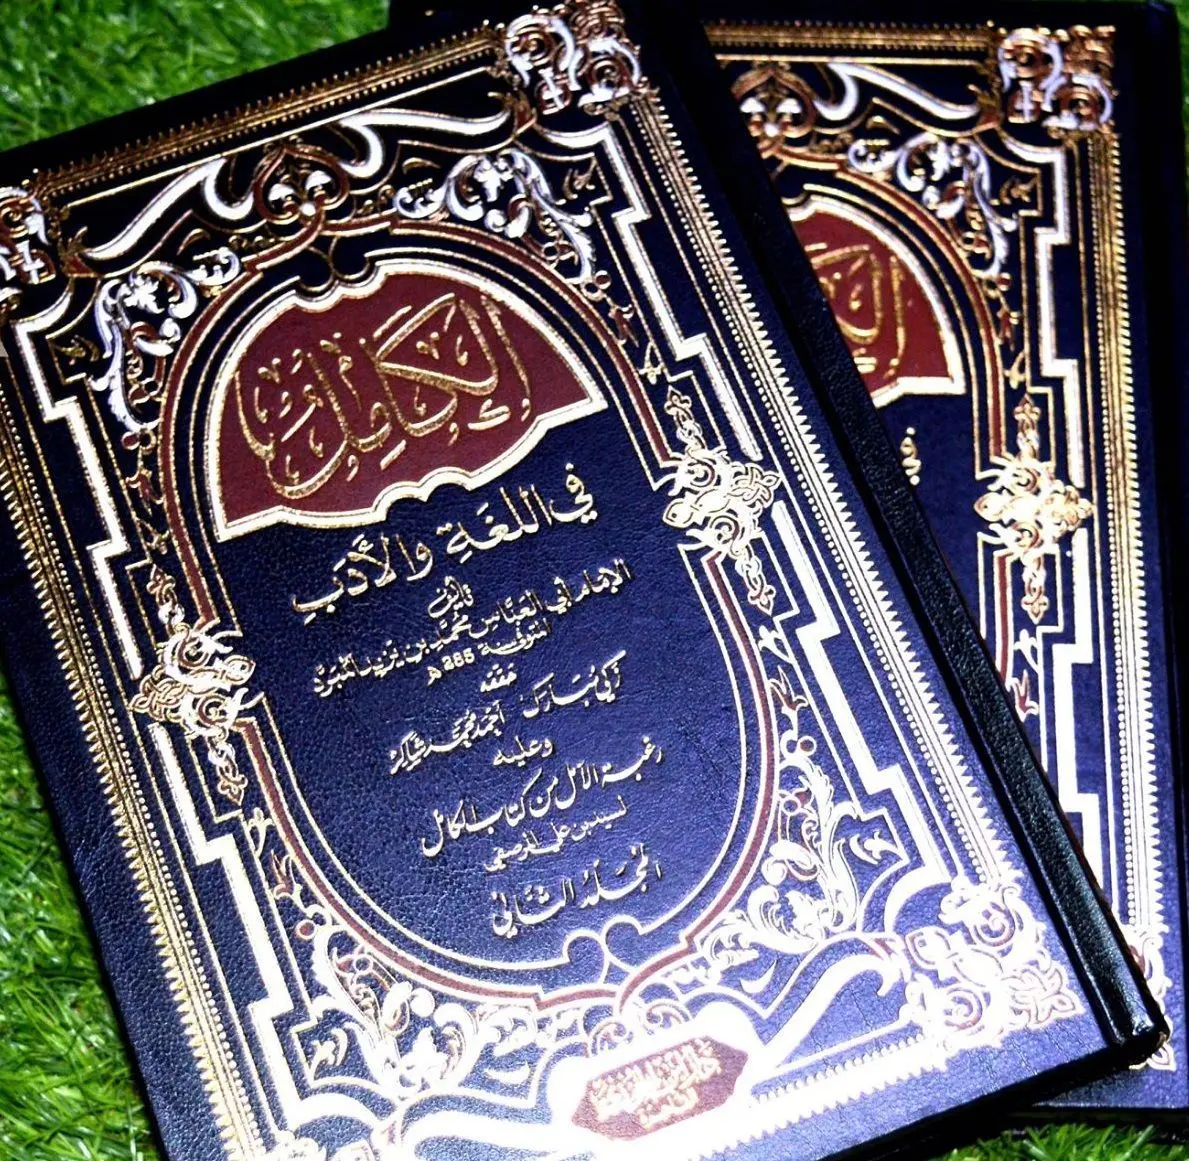 الكامل
في اللغة والأدب
تأليف
الإمام أبي العباس محمد بن يزيد المبرد
المتوفى سنة 285هـ
حققه
زكي مبارك أحمد محمد شاكر
وعليه
رغبة الآمل من كتاب الكامل
لسيد بن علي المرصفي
المجلد الثاني